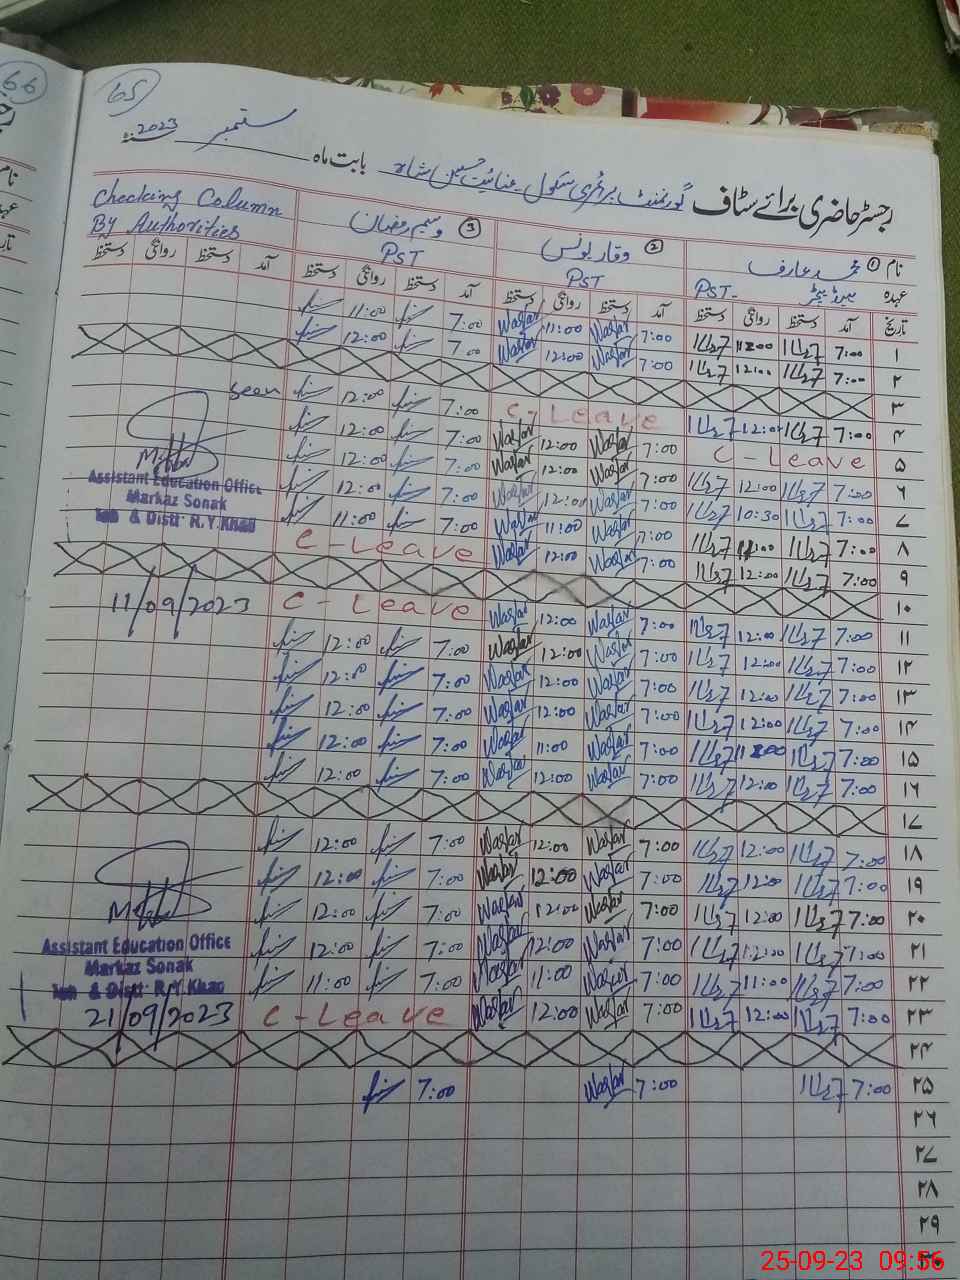 66
65
رجسٹر حاضری برائے سٹاف گورنمنٹ پرائمری سکول عنائت حسین شاہ بابت ماہ ستمبر سنہ 2023
نام ① محمد عارف ② وقار یونس ③ وسیم رمضان Checking Column
عہدہ ہیڈ ٹیچر PST- PST PST By Authorities
تاریخ آمد دستخط روانگی دستخط آمد دستخط روانگی دستخط آمد دستخط روانگی دستخط آمد دستخط روانگی دستخط
۱ 7:00 11:00 7:00 Waqar 11:00 Waqar 7:00 11:00
۲ 7:00 12:00 7:00 Waqar 12:00 Waqar 7:00 12:00
۳
۴ 7:00 12:00 C-Leave 7:00 12:00 Seen
۵ C-Leave 7:00 Waqar 12:00 Waqar 7:00 12:00
۶ 7:00 12:00 7:00 Waqar 12:00 Waqar 7:00 12:00
۷ 7:00 10:30 7:00 Waqar 12:00 Waqar 7:00 12:00
Assistant Education Office
Markaz Sonak
& Distt: R.Y.Khan
۸ 7:00 11:00 7:00 Waqar 11:00 Waqar 7:00 11:00
۹ 7:00 12:00 7:00 Waqar 12:00 Waqar C-Leave
۱۰
۱۱ 7:00 12:00 7:00 Waqar 12:00 Waqar C-Leave 11/09/2023
۱۲ 7:00 12:00 7:00 Waqar 12:00 Waqar 7:00 12:00
۱۳ 7:00 12:00 7:00 Waqar 12:00 Waqar 7:00 12:00
۱۴ 7:00 12:00 7:00 Waqar 12:00 Waqar 7:00 12:00
۱۵ 7:00 11:00 7:00 Waqar 11:00 Waqar 7:00 12:00
۱۶ 7:00 12:00 7:00 Waqar 12:00 Waqar 7:00 12:00
۱۷
۱۸ 7:00 12:00 7:00 Waqar 12:00 Waqar 7:00 12:00
۱۹ 7:00 12:00 7:00 Waqar 12:00 Waqar 7:00 12:00
۲۰ 7:00 12:00 7:00 Waqar 12:00 Waqar 7:00 12:00
۲۱ 7:00 12:00 7:00 Waqar 12:00 Waqar 7:00 12:00
Assistant Education Office
Markaz Sonak
& Distt: R.Y.Khan
۲۲ 7:00 11:00 7:00 Waqar 11:00 Waqar 7:00 11:00
۲۳ 7:00 12:00 7:00 Waqar 12:00 Waqar C-Leave 21/09/2023
۲۴
۲۵ 7:00 7:00 Waqar 7:00
۲۶
۲۷
۲۸
۲۹
۳۰
25-09-23 09:56